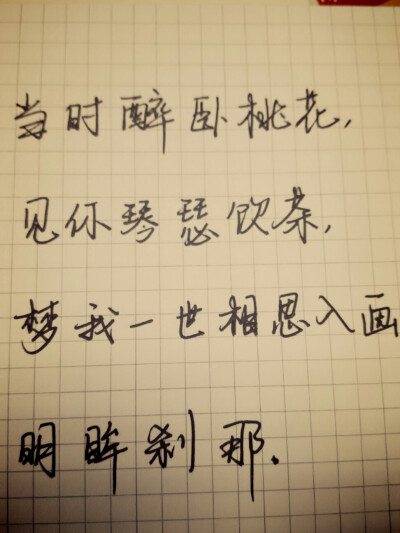 当时醉卧桃花,
见你琴瑟饮茶,
梦我一世相思入画
明眸刹那.